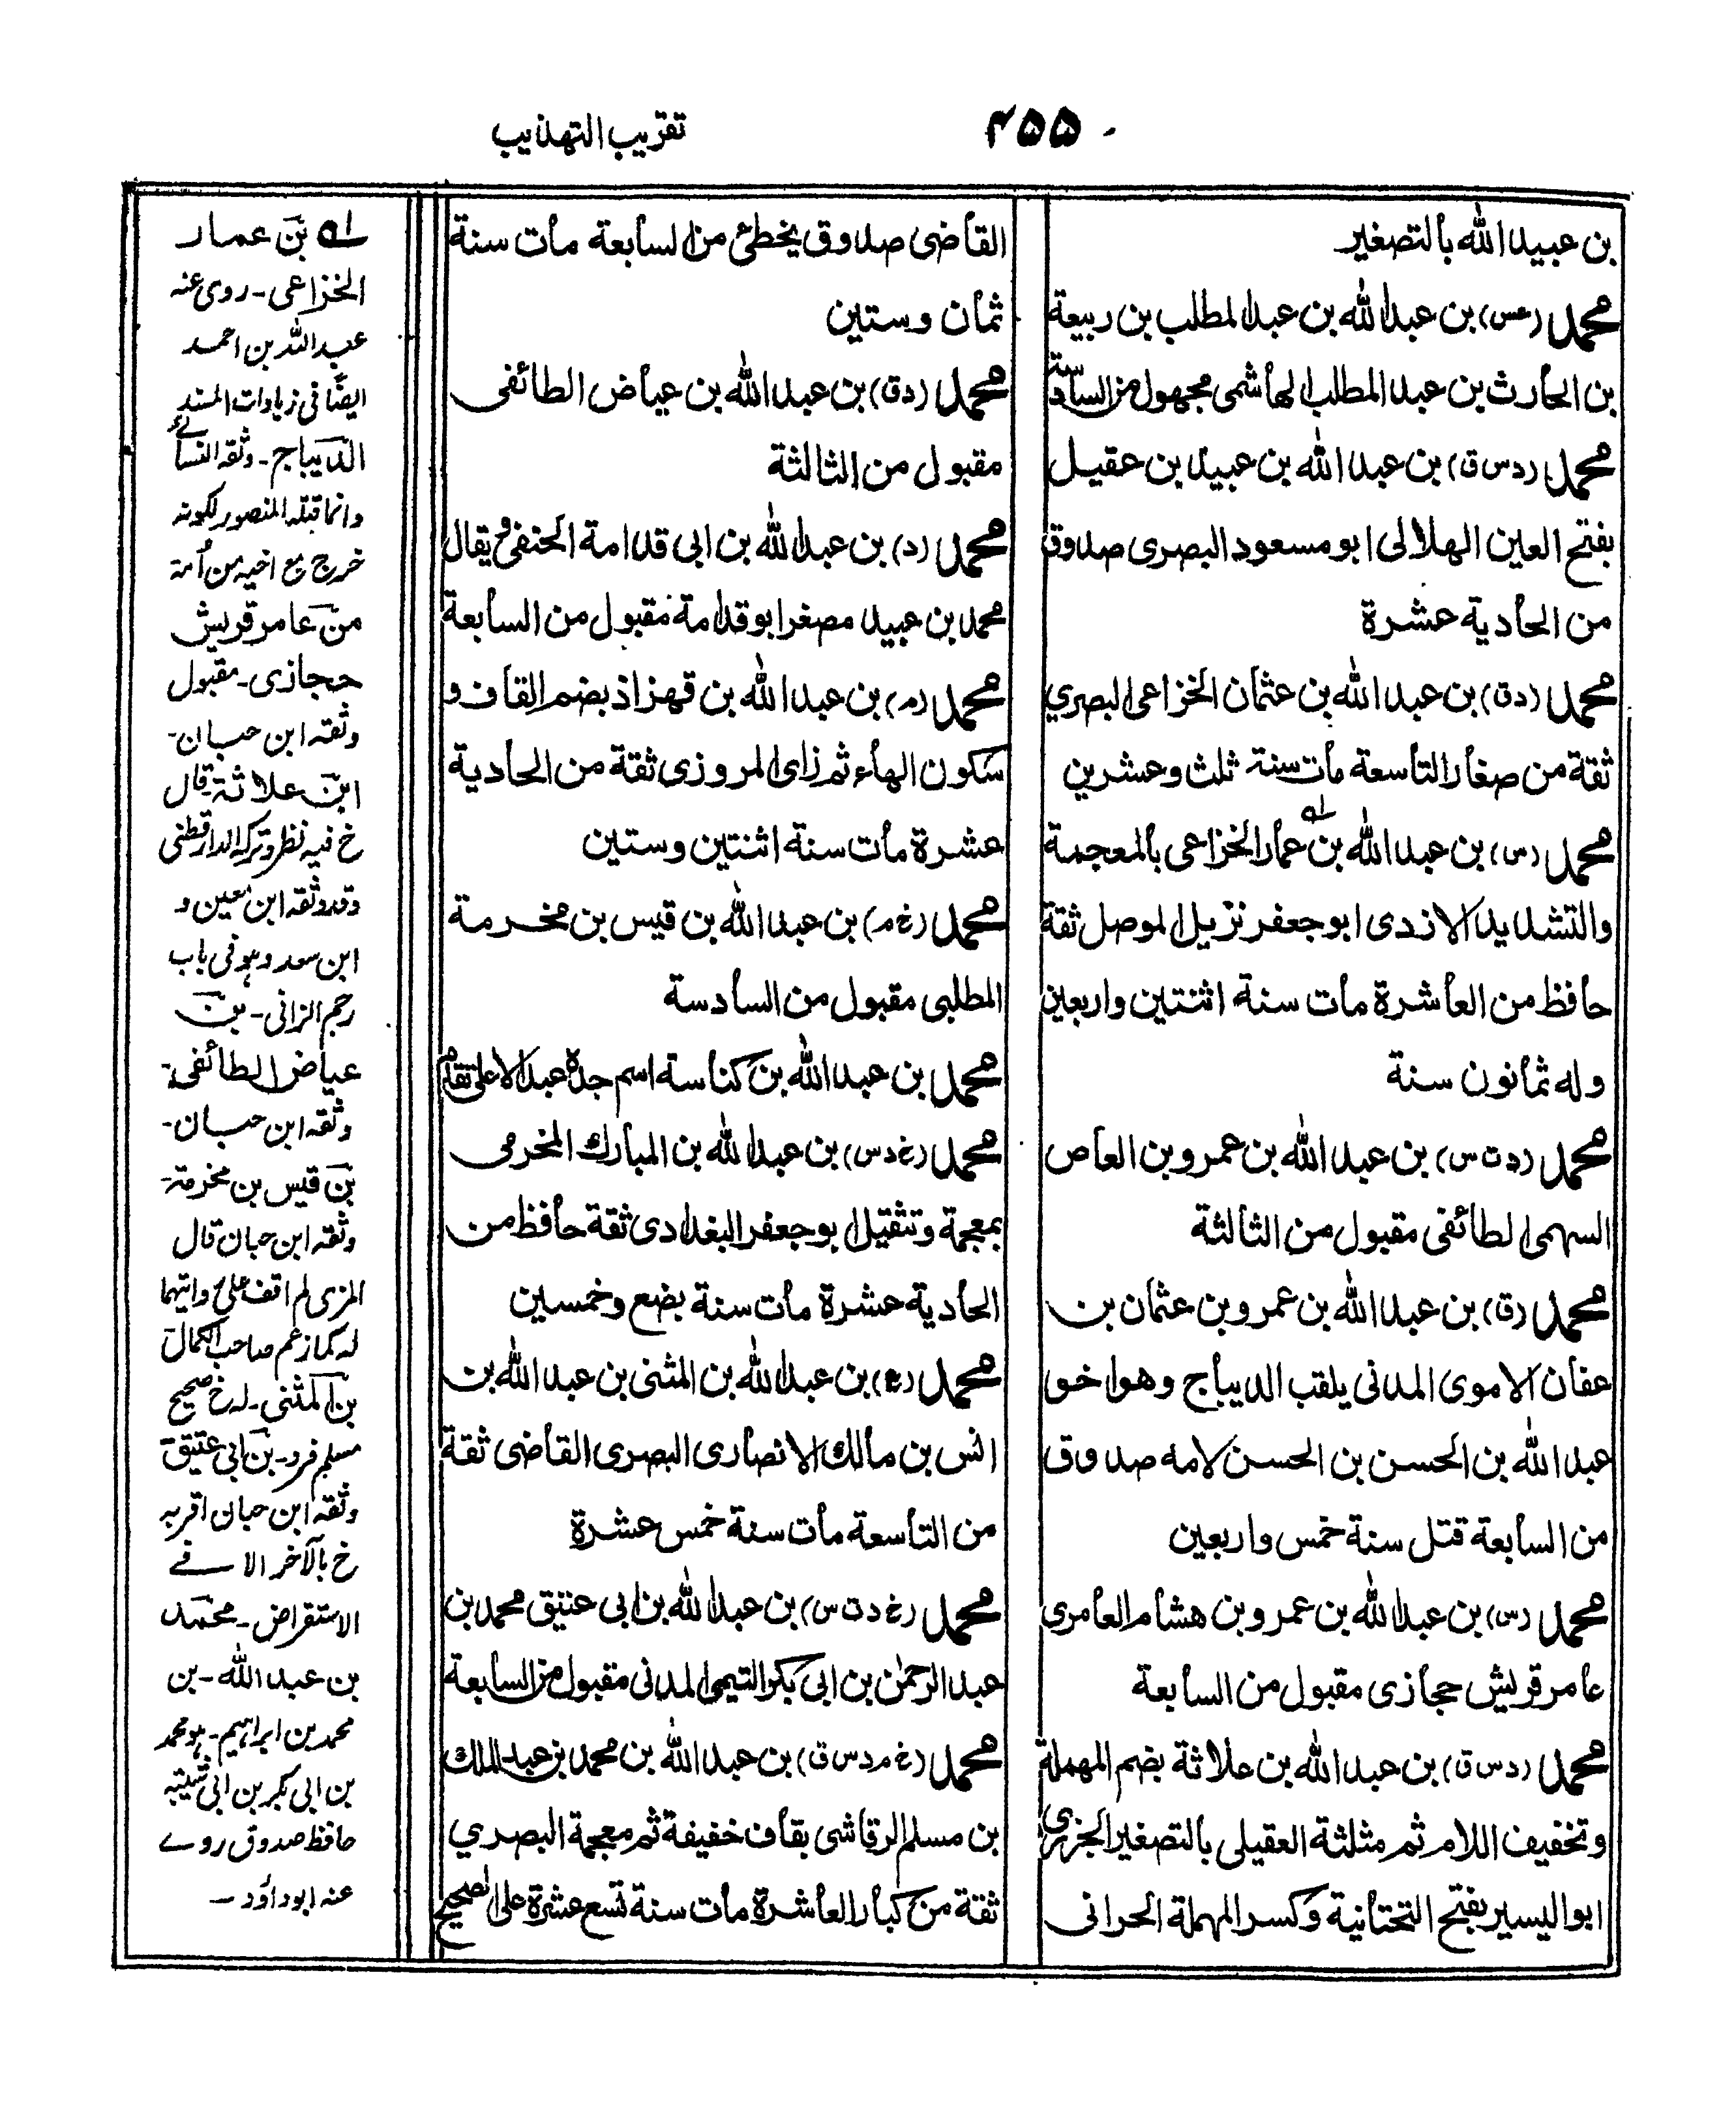 ٤٥٥
تقريب التهذيب
بن عبيد الله بالتصغير
محمد (عس) بن عبد الله بن عبد المطلب بن ربيعة
بن الحارث بن عبد المطلب الهاشمى مجهول من السادسة
محمد (د س ق) بن عبد الله بن عبيد بن عقيل
بفتح العين الهلالى ابو مسعود البصرى صدوق
من الحادية عشرة
محمد (د ق) بن عبد الله بن عثمان الخزاعى البصري
ثقة من صغار التاسعة مات سنة ثلث وعشرين
محمد (س) بن عبد الله بن عمار الخزاعى بالمعجمة
والتشديد الازدى ابو جعفر نزيل الموصل ثقة
حافظ من العاشرة مات سنة اثنتين واربعين
وله ثمانون سنة
محمد (د ت س) بن عبد الله بن عمرو بن العاص
السهمى الطائفى مقبول من الثالثة
محمد (ق) بن عبد الله بن عمرو بن عثمان بن
عفان الاموى المدنى يلقب الديباج وهو اخو
عبد الله بن الحسن بن الحسن لامه صدوق
من السابعة قتل سنة خمس واربعين
محمد (س) بن عبد الله بن عمرو بن هشام العامرى
عامر قريش حجازى مقبول من السابعة
محمد (د س ق) بن عبد الله بن علاثة بضم المهملة
وتخفيف اللام ثم مثلثة العقيلى بالتصغير الجزري
ابو اليسير بفتح التحتانية وكسر المهملة الحرانى
القاضى صدوق يخطئ من السابعة مات سنة
ثمان وستين
محمد (د ق) بن عبد الله بن عياض الطائفى
مقبول من الثالثة
محمد (د) بن عبد الله بن ابى قدامة الحنفى ويقال
محمد بن عبيد مصغر ابو قدامة مقبول من السابعة
محمد (م) بن عبد الله بن قهزاذ بضم القاف و
سكون الهاء ثم زاى المروزى ثقة من الحادية
عشرة مات سنة اثنتين وستين
محمد (خ م) بن عبد الله بن قيس بن مخرمة
المطلبى مقبول من السادسة
محمد بن عبد الله بن كناسة اسم جده عبد الاعلى تقدم
محمد (خ د س) بن عبد الله بن المبارك المخرمى
بمعجمة وتثقيل ابو جعفر البغدادى ثقة حافظ من
الحادية عشرة مات سنة بضع وخمسين
محمد (ع) بن عبد الله بن المثنى بن عبد الله بن
انس بن مالك الانصارى البصرى القاضى ثقة
من التاسعة مات سنة خمس عشرة
محمد (خ د ت س) بن عبد الله بن ابى عتيق محمد بن
عبد الرحمن بن ابى بكر التيمى المدنى مقبول من السابعة
محمد (خ م د س ق) بن عبد الله بن محمد بن عبد الملك
بن مسلم الرقاشى بقاف خفيفة ثم معجمة البصري
ثقة من كبار العاشرة مات سنة تسع عشرة على الصحيح
له بن عمار
الخزاعى ـ روى عنه
عبد الله بن احمد
ايضًا فى زيادات المسند
الديباج ـ وثقه النسائے
وانما قتله المنصور لكونه
خرج مع اخيه من امه
من عامر قريش
حجازى ـ مقبول
وثقه ابن حبان ـ
ابن علاثة ـ قال
خ فيه نظر وتركه الدارقطنى
وقد وثقه ابن معين و
ابن سعد وهو فى باب
رجم الزانى ـ بن
عياض الطائفى ـ
وثقه ابن حبان ـ
بن قيس بن مخرمة ـ
وثقه ابن حبان قال
المزى لم اقف على روايتهما
له كما زعم صاحب الكمال
بن المثنى ـ له خ صحيح
مسلم فرد ـ بن ابى عتيق
وثقه ابن حبان اقربه
خ بالآخر الا فے
الاستقراض ـ محمد
بن عبد الله ـ بن
محمد بن ابراهيم ـ هو محمد
بن ابى بكر بن ابى شيبة
حافظ صدوق روے
عنه ابو داود ـ